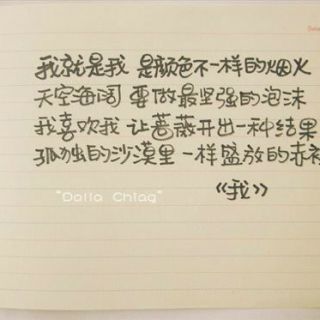 我就是我 是颜色不一样的烟火
天空海阔 要做最坚强的泡沫
我喜欢我 让蔷薇开出一种结果
孤独的沙漠里 一样盛放的赤裸
《我》
"Dolla Chiag"